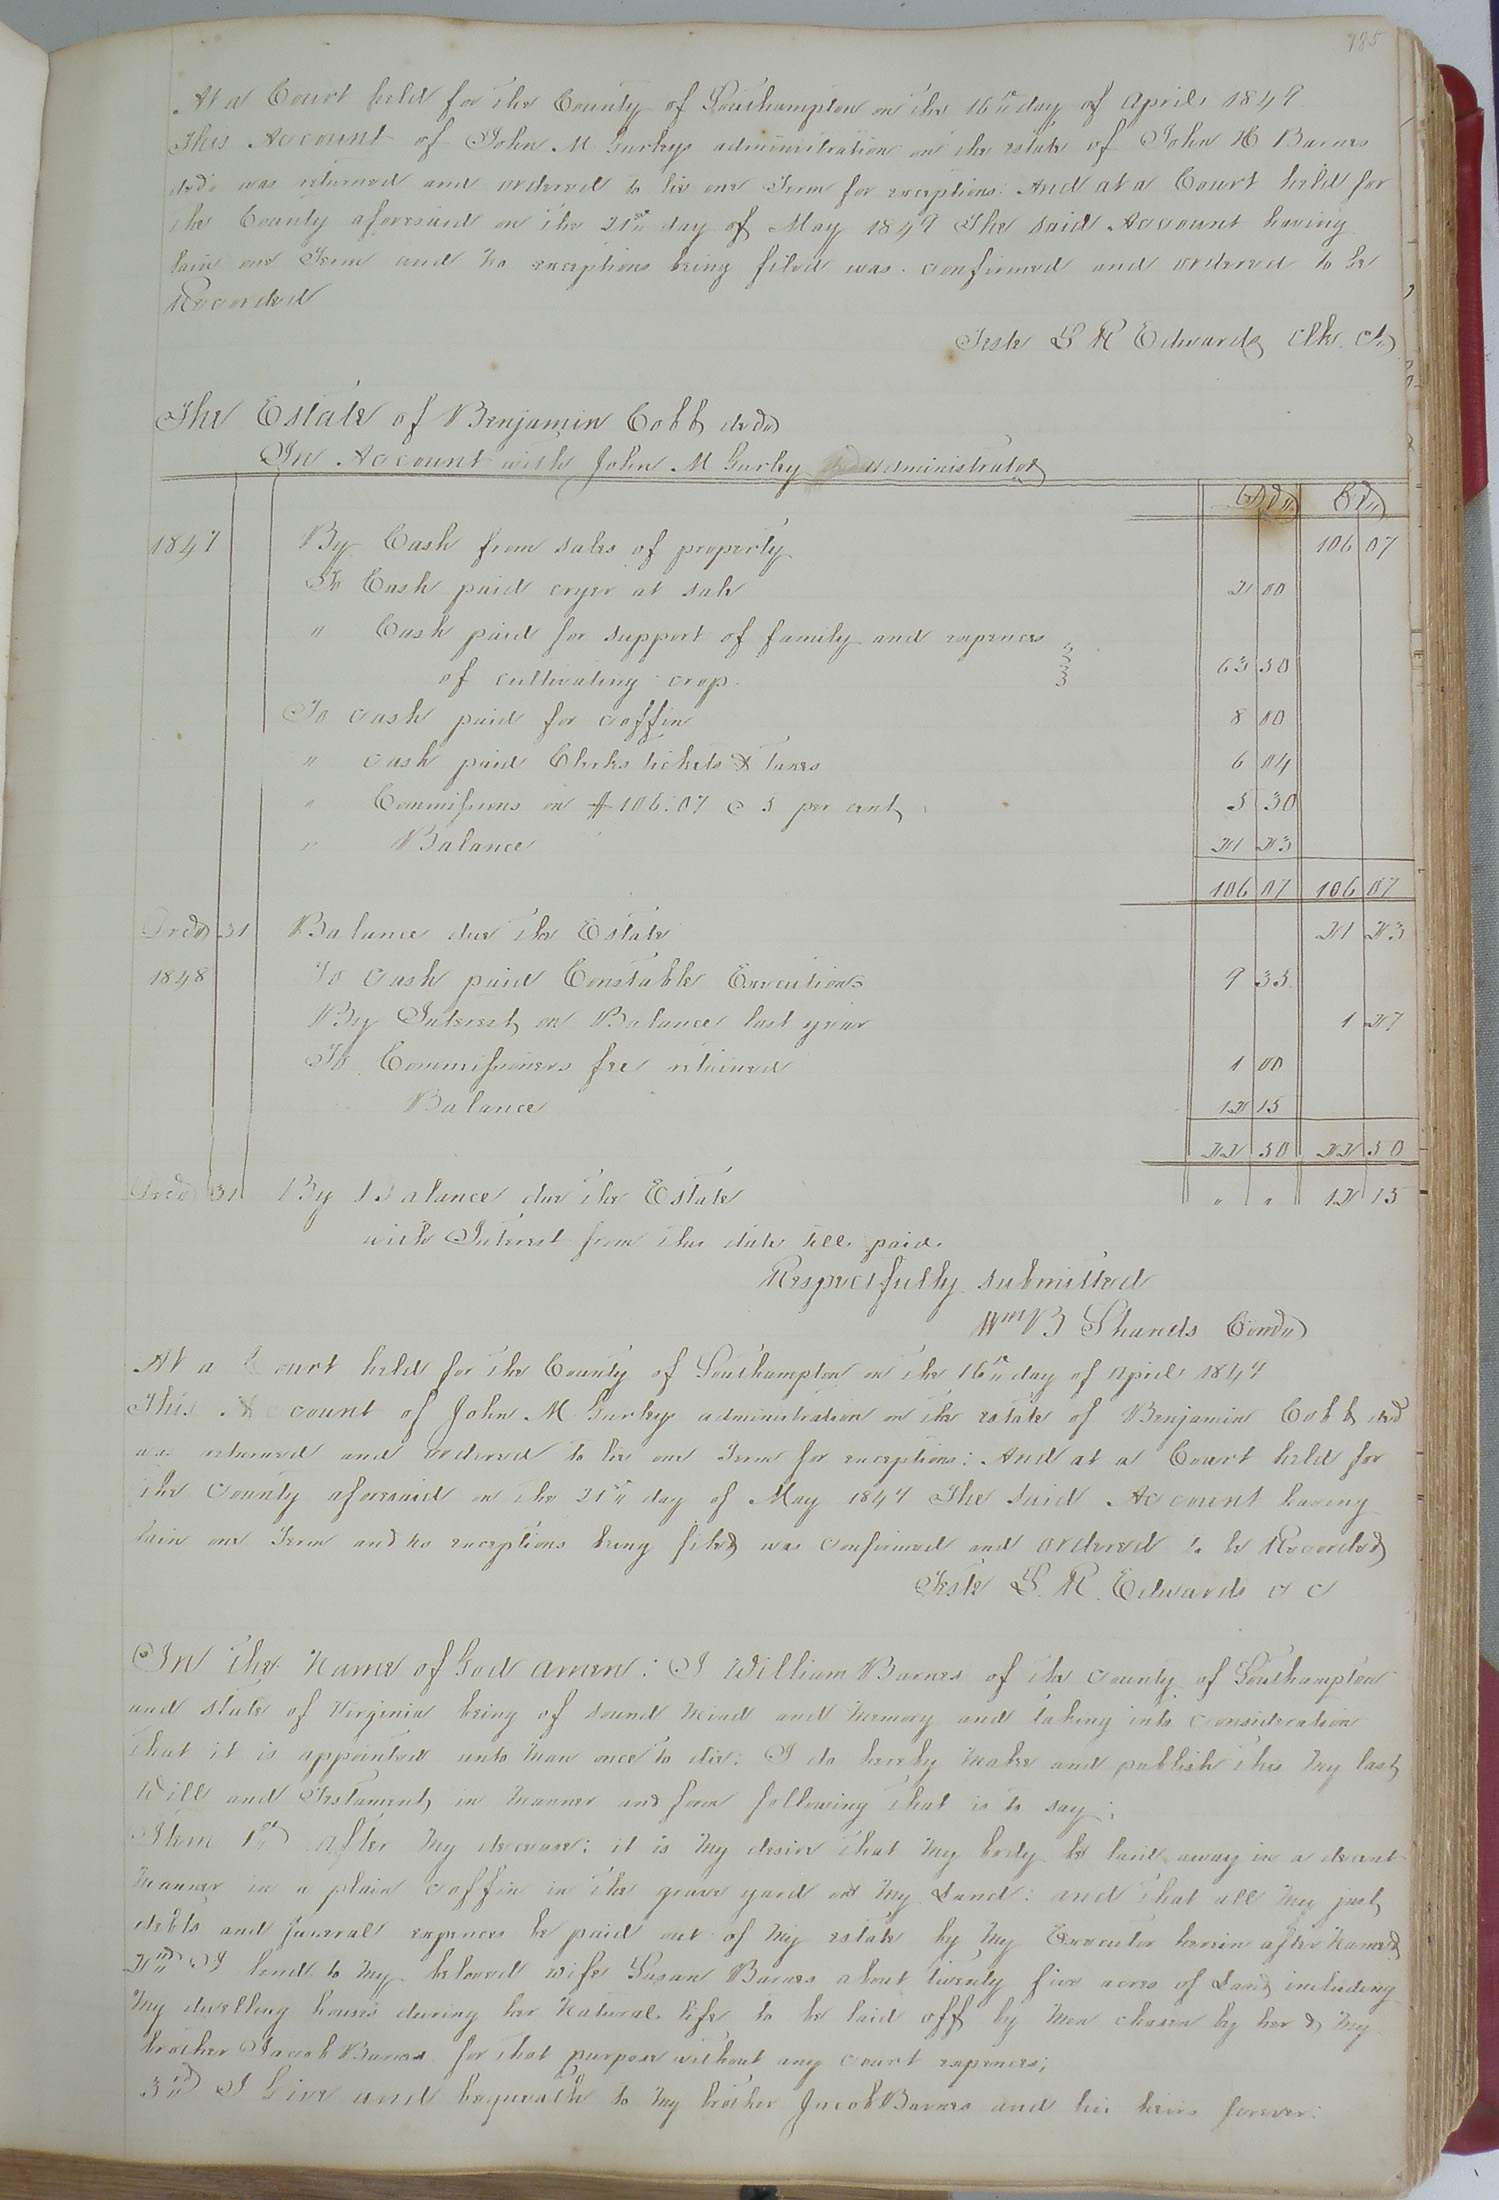 185
At a Court held for the County of Southampton on the 16th day of April 1849
This Account of John M Gurleys administration on the estate of John H Barnes
decd was returned and ordered to lie one Term for exceptions: And at a Court held for
the County aforesaid on the 21st day of May 1849 The said Account having
lain one Term and no exceptions being filed was confirmed and ordered to be
Recorded
Teste L R Edwards Clk Ct
The Estate of Benjamin Cobb decd
In Account with John M Gurley administrator
Dr Cr
1847 By Cash from sales of property 106 07
To Cash paid cryer at sale 2 00
" Cash paid for support of family and expences
of cultivating crop 63 50
To cash paid for coffin 8 00
" cash paid Clerks tickets & taxes 6 04
" Commissions on $106.07 @ 5 per cent 5 30
" Balance 21 23
106 07 106 07
Decr 31 Balance due the Estate 21 23
1848 To cash paid Constable Executions 9 35
By Interest on Balance last year 1 27
To Commissioners fee retained 1 00
Balance 12 15
22 50 22 50
Decr 31 By Balance due the Estate " " 12 15
with Interest from this date till paid
Respectfully submitted
Wm B Shands Comr
At a Court held for the County of Southampton on the 16th day of April 1849
This Account of John M Gurleys administration on the estate of Benjamin Cobb decd
was returned and ordered to lie one Term for exceptions: And at a Court held for
the County aforesaid on the 21st day of May 1849 The said Account having
lain one Term and no exceptions being filed was confirmed and ordered to be Recorded
Teste L. R. Edwards C C
In the Name of God amen: I William Barnes of the County of Southampton
and state of Virginia being of sound Mind and Memory and taking into consideration
that it is appointed unto Man once to die: I do hereby Make and publish this My last
Will and Testament, in Manner and form following that is to say:
Item 1st After My decease: it is My desire that My body be laid away in a decent
Manner in a plain coffin in the grave yard on My Land: and that all My just
debts and funeral expences be paid out of My estate by My Executor herein after Named
2nd I lend to My beloved wife Susan Barnes about twenty five acres of Land including
My dwelling houses during her Natural life to be laid off by Men chosen by her & My
brother Jacob Barnes for that purpose without any court expences;
3rd I Give and bequeath to My brother Jacob Barnes and his heirs forever: